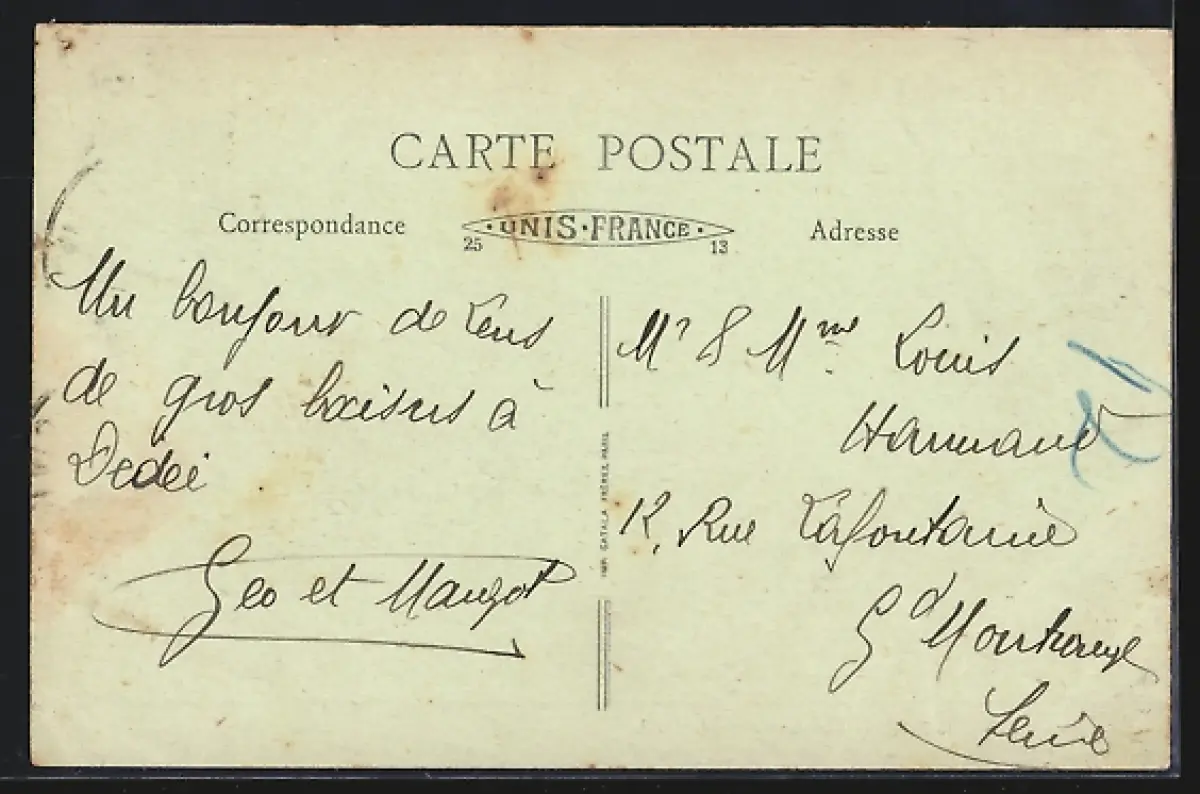 CARTE POSTALE
Correspondance
25 UNIS·FRANCE 13
Adresse
Un bonjour de Lens
de gros baisers à
Dedei
Geo et Margot
IMP. CATALA FRÈRES, PARIS
Mr & Mme Louis
12, Rue Lafontaine
Gd Montrouge
Seine